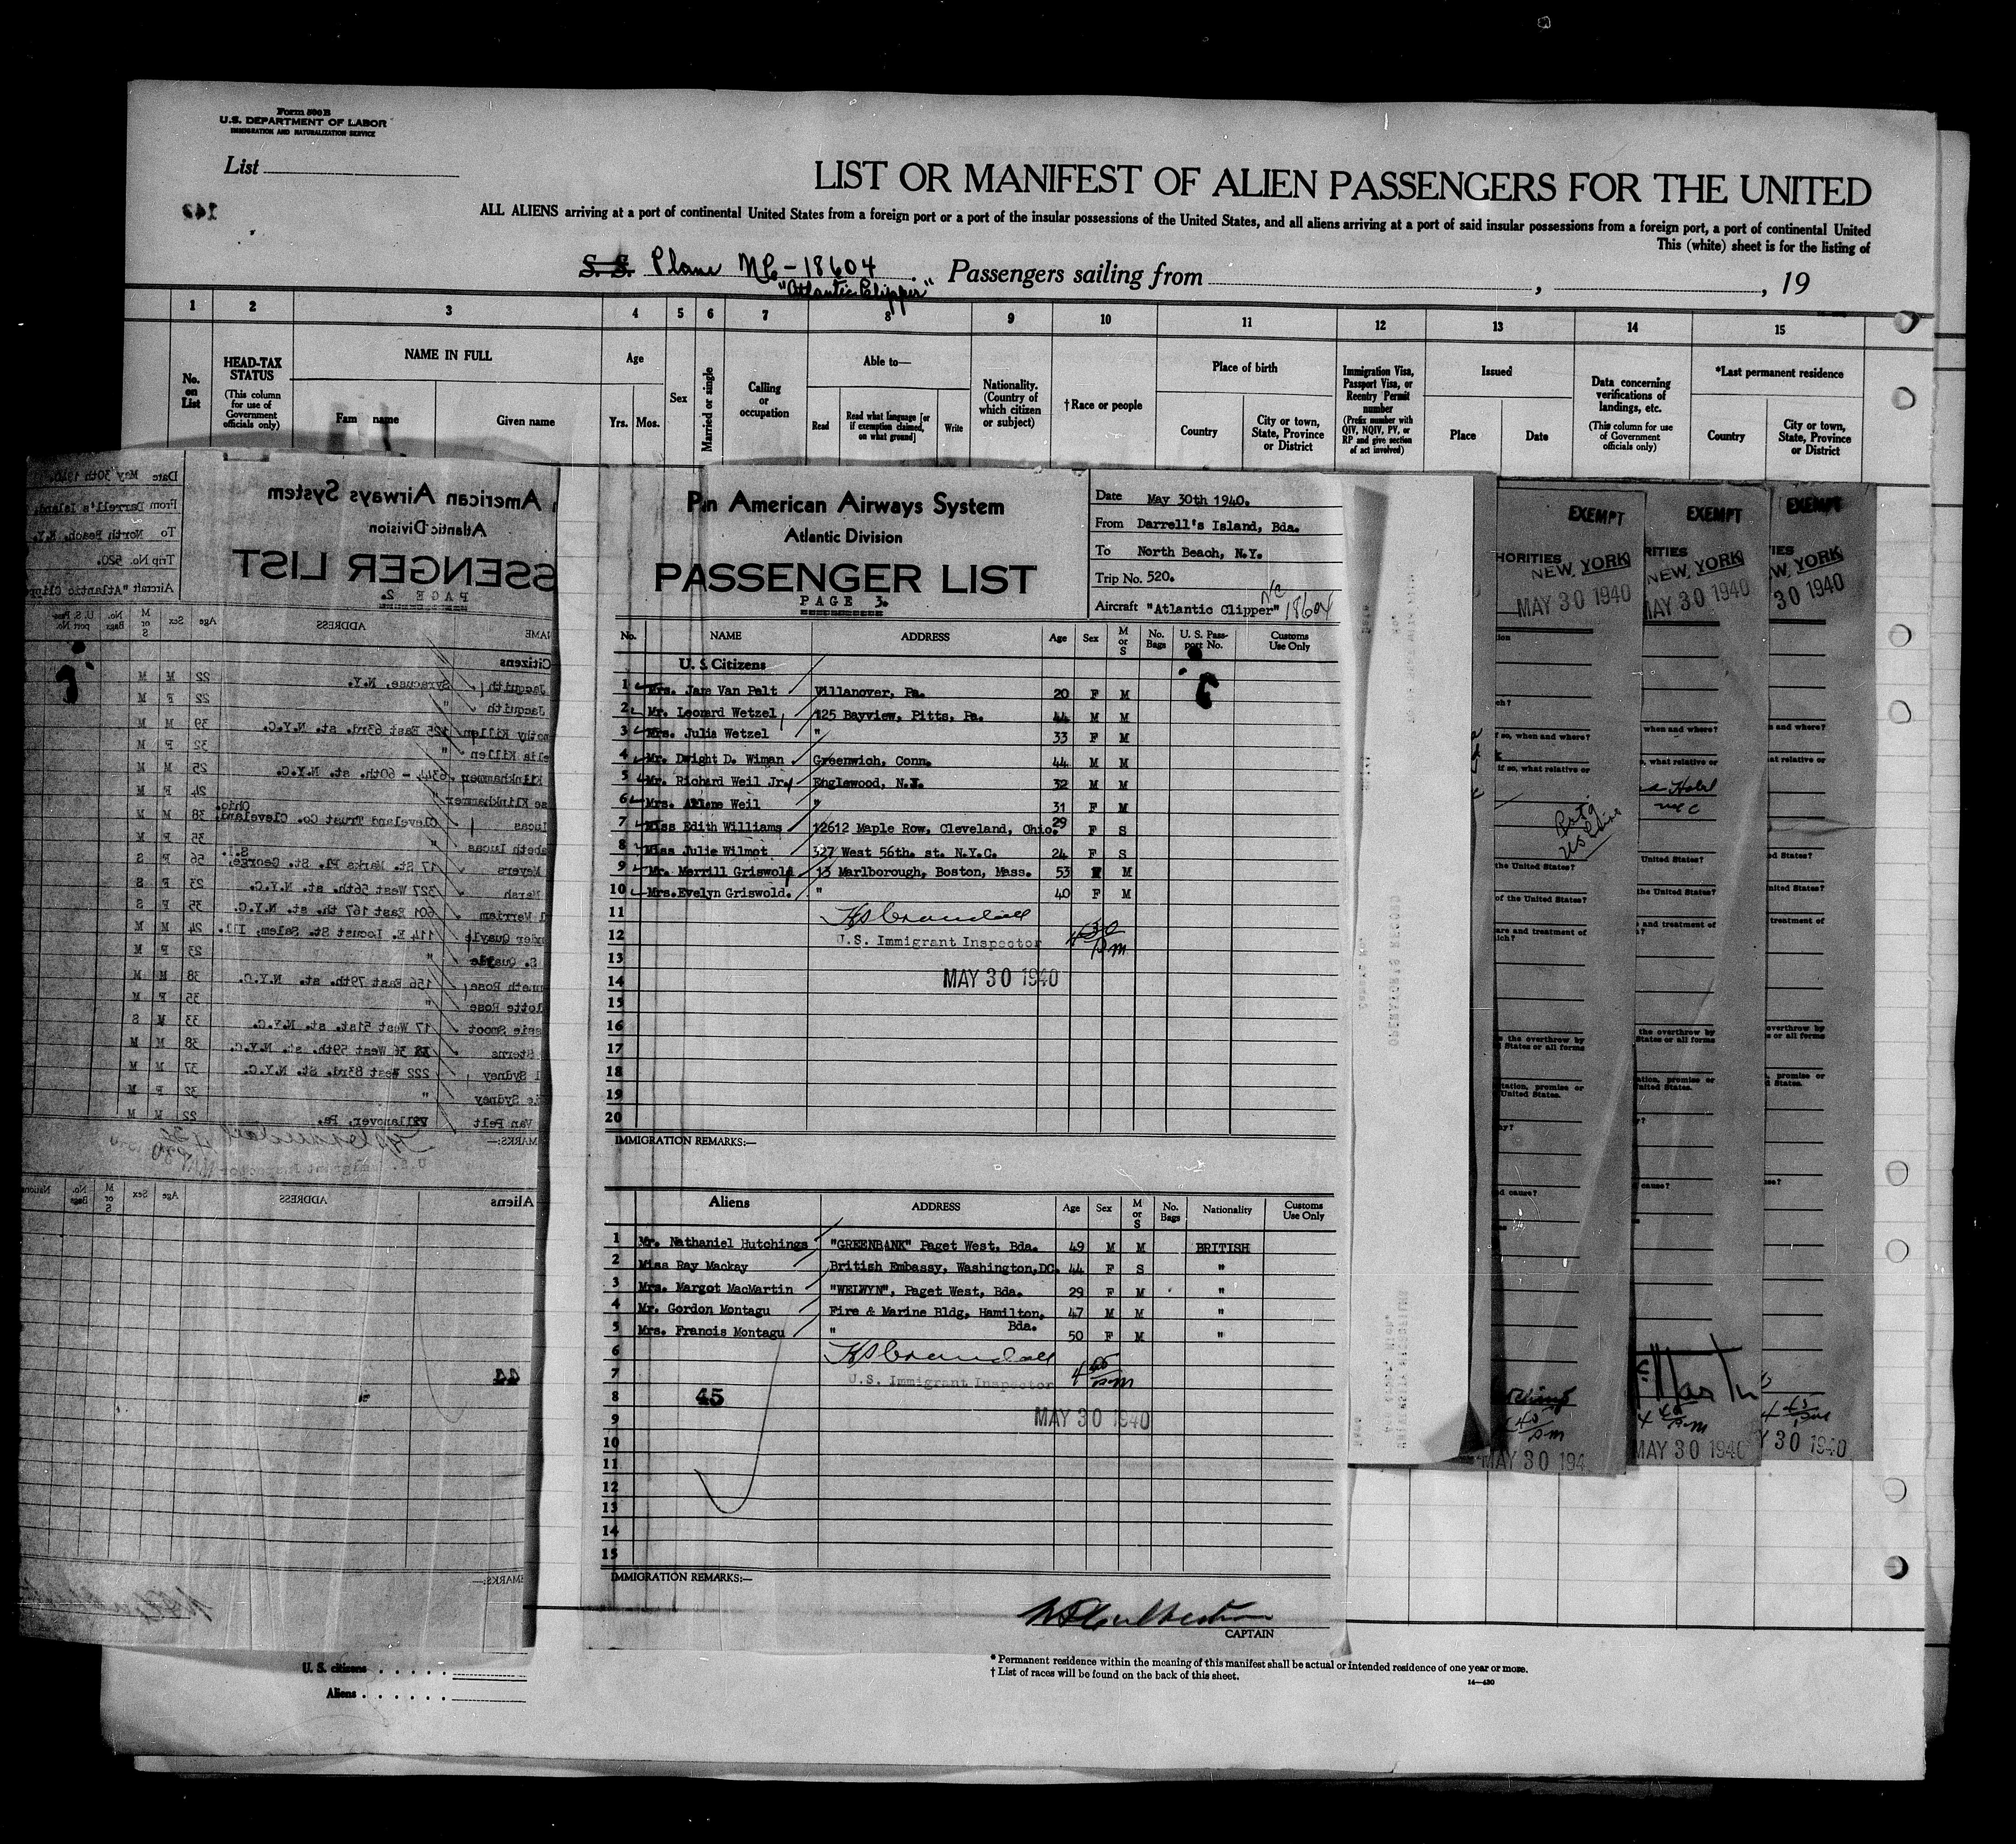 Form 500 B
U.S. DEPARTMENT OF LABOR
IMMIGRATION AND NATURALIZATION SERVICE
List
LIST OR MANIFEST OF ALIEN PASSENGERS FOR THE UNITED
ALL ALIENS arriving at a port of continental United States from a foreign port or a port of the insular possessions of the United States, and all aliens arriving at a port of said insular possessions from a foreign port, a port of continental United
This (white) sheet is for the listing of
S. S. Plane NC-18604 Passengers sailing from , , 19
"Atlantic Clipper"
1 2 3 4 5 6 7 8 9 10 11 12 13 14 15
No. on List
HEAD-TAX STATUS
(This column for use of Government officials only)
NAME IN FULL
Fam name Given name
Age
Yrs. Mos.
Sex
Married or single
Calling or occupation
Able to—
Read
Read what language [or if exemption claimed, on what ground]
Write
Nationality. (Country of which citizen or subject)
†Race or people
Place of birth
Country
City or town, State, Province or District
Immigration Visa, Passport Visa, or Reentry Permit number
(Prefix number with QIV, NQIV, PV, or RP and give section of act involved)
Issued
Place Date
Data concerning verifications of landings, etc.
(This column for use of Government officials only)
*Last permanent residence
Country
City or town, State, Province or District
American Airways System
Atlantic Division
SSENGER LIST
PAGE 2.
Date May 30th 1940.
From Darrell's Island,
To North Beach, N.Y.
Trip No. 520.
Aircraft "Atlantic Clipp
NAME ADDRESS Age Sex M or S No. Bags U.S. Pass-port No.
Citizens
Jaquith Syracuse, N.Y. 22 M M
Jaquith " 22 F M
mothy Killen 125 East 63rd. st. N.Y.C. 39 M M
elia Killen " 32 F M
Klinkhammer 6344 - 60th. st. N.Y.C. 25 M M
se Klinkhammer " 24 F M
Lucas Cleveland Trust Co. Cleveland, Ohio. 38 M M
abeth Lucas " 35 F M
Meyers 17 St. Marks Pl. St. George, S.I. 56 F S
Marsh 327 West 56th. st. N.Y.C. 23 F S
l Merriam 601 East 167 th. st. N.Y.C. 35 F S
nder Quayle 114 E. Locust St. Salem, Ill. 24 M M
S. Quayle " 23 F M
nneth Rose 156 East 79th. st. N.Y.C. 38 M M
lotte Rose " 35 F M
ssie Smoot 17 West 51st. st. N.Y.C. 33 M S
Sterns 36 West 59th. st. N.Y.C. 38 M M
l Sydney 222 West 83rd. St. N.Y.C. 37 M M
Sydney " 32 F M
Van Pelt Villanover, Pa. 22 M M
MARKS:—
Aliens ADDRESS Age Sex M or S No. Bags Nationa
44
MARKS:—
Pan American Airways System
Atlantic Division
PASSENGER LIST
PAGE 3.
Date May 30th 1940.
From Darrell's Island, Bda.
To North Beach, N.Y.
Trip No. 520.
Aircraft "Atlantic Clipper" NC 18604
No. NAME ADDRESS Age Sex M or S No. Bags U. S. Pass-port No. Customs Use Only
U. S. Citizens
1 Mrs. Jane Van Pelt Villanover, Pa. 20 F M
2 Mr. Leonard Wetzel 125 Bayview, Pitts. Pa. 44 M M
3 Mrs. Julia Wetzel " 33 F M
4 Mr. Dwight D. Wiman Greenwich, Conn. 44 M M
5 Mr. Richard Weil Jr. Englewood, N.J. 32 M M
6 Mrs. Weil " 31 F M
7 Miss Edith Williams 12612 Maple Row, Cleveland, Ohio. 29 F S
8 Miss Julie Wilmot 327 West 56th. st. N.Y.C. 24 F S
9 Mr. Merrill Griswold 13 Marlborough, Boston, Mass. 53 M
10 Mrs. Evelyn Griswold. " 40 F M
11
12 U.S. Immigrant Inspector 4 30 pm
13
14 MAY 30 1940
15
16
17
18
19
20
IMMIGRATION REMARKS:—
Aliens ADDRESS Age Sex M or S No. Bags Nationality Customs Use Only
1 Mr. Nathaniel Hutchings "GREENBANK" Paget West, Bda. 49 M M BRITISH
2 Miss Ray Mackay British Embassy, Washington,DC. 44 F S "
3 Mrs. Margot MacMartin "WELWYN", Paget West, Bda. 29 F M "
4 Mr. Gordon Montagu Fire & Marine Bldg, Hamilton, Bda. 47 M M "
5 Mrs. Francis Montagu " 50 F M "
6
7 U.S. Immigrant Inspector 4 45 pm
8 45
9 MAY 30 1940
10
11
12
13
14
15
IMMIGRATION REMARKS:—
CAPTAIN
OPERATOR'S RECORD
EXEMPT
HORITIES
NEW YORK
MAY 30 1940
if so, when and where?
If so, what relative or
the United States?
of the United States?
are and treatment of
the overthrow by
States or all forms
tation, promise or
United States.
d cause?
4 45 pm
MAY 30 194
EXEMPT
RITIES
NEW YORK
MAY 30 1940
when and where?
, what relative or
Hotel
NYC
United States?
the United States?
and treatment of
the overthrow by
States or all forms
ation, promise or
United States.
cause?
4 45 pm
MAY 30 1940
EXEMPT
TIES
W YORK
30 1940
and where?
at relative or
ed States?
nited States?
treatment of
overthrow by
s or all forms
, promise or
d States.
se?
4 45 pm
Y 30 1940
U. S. citizens
Aliens
* Permanent residence within the meaning of this manifest shall be actual or intended residence of one year or more.
† List of races will be found on the back of this sheet.
14—430